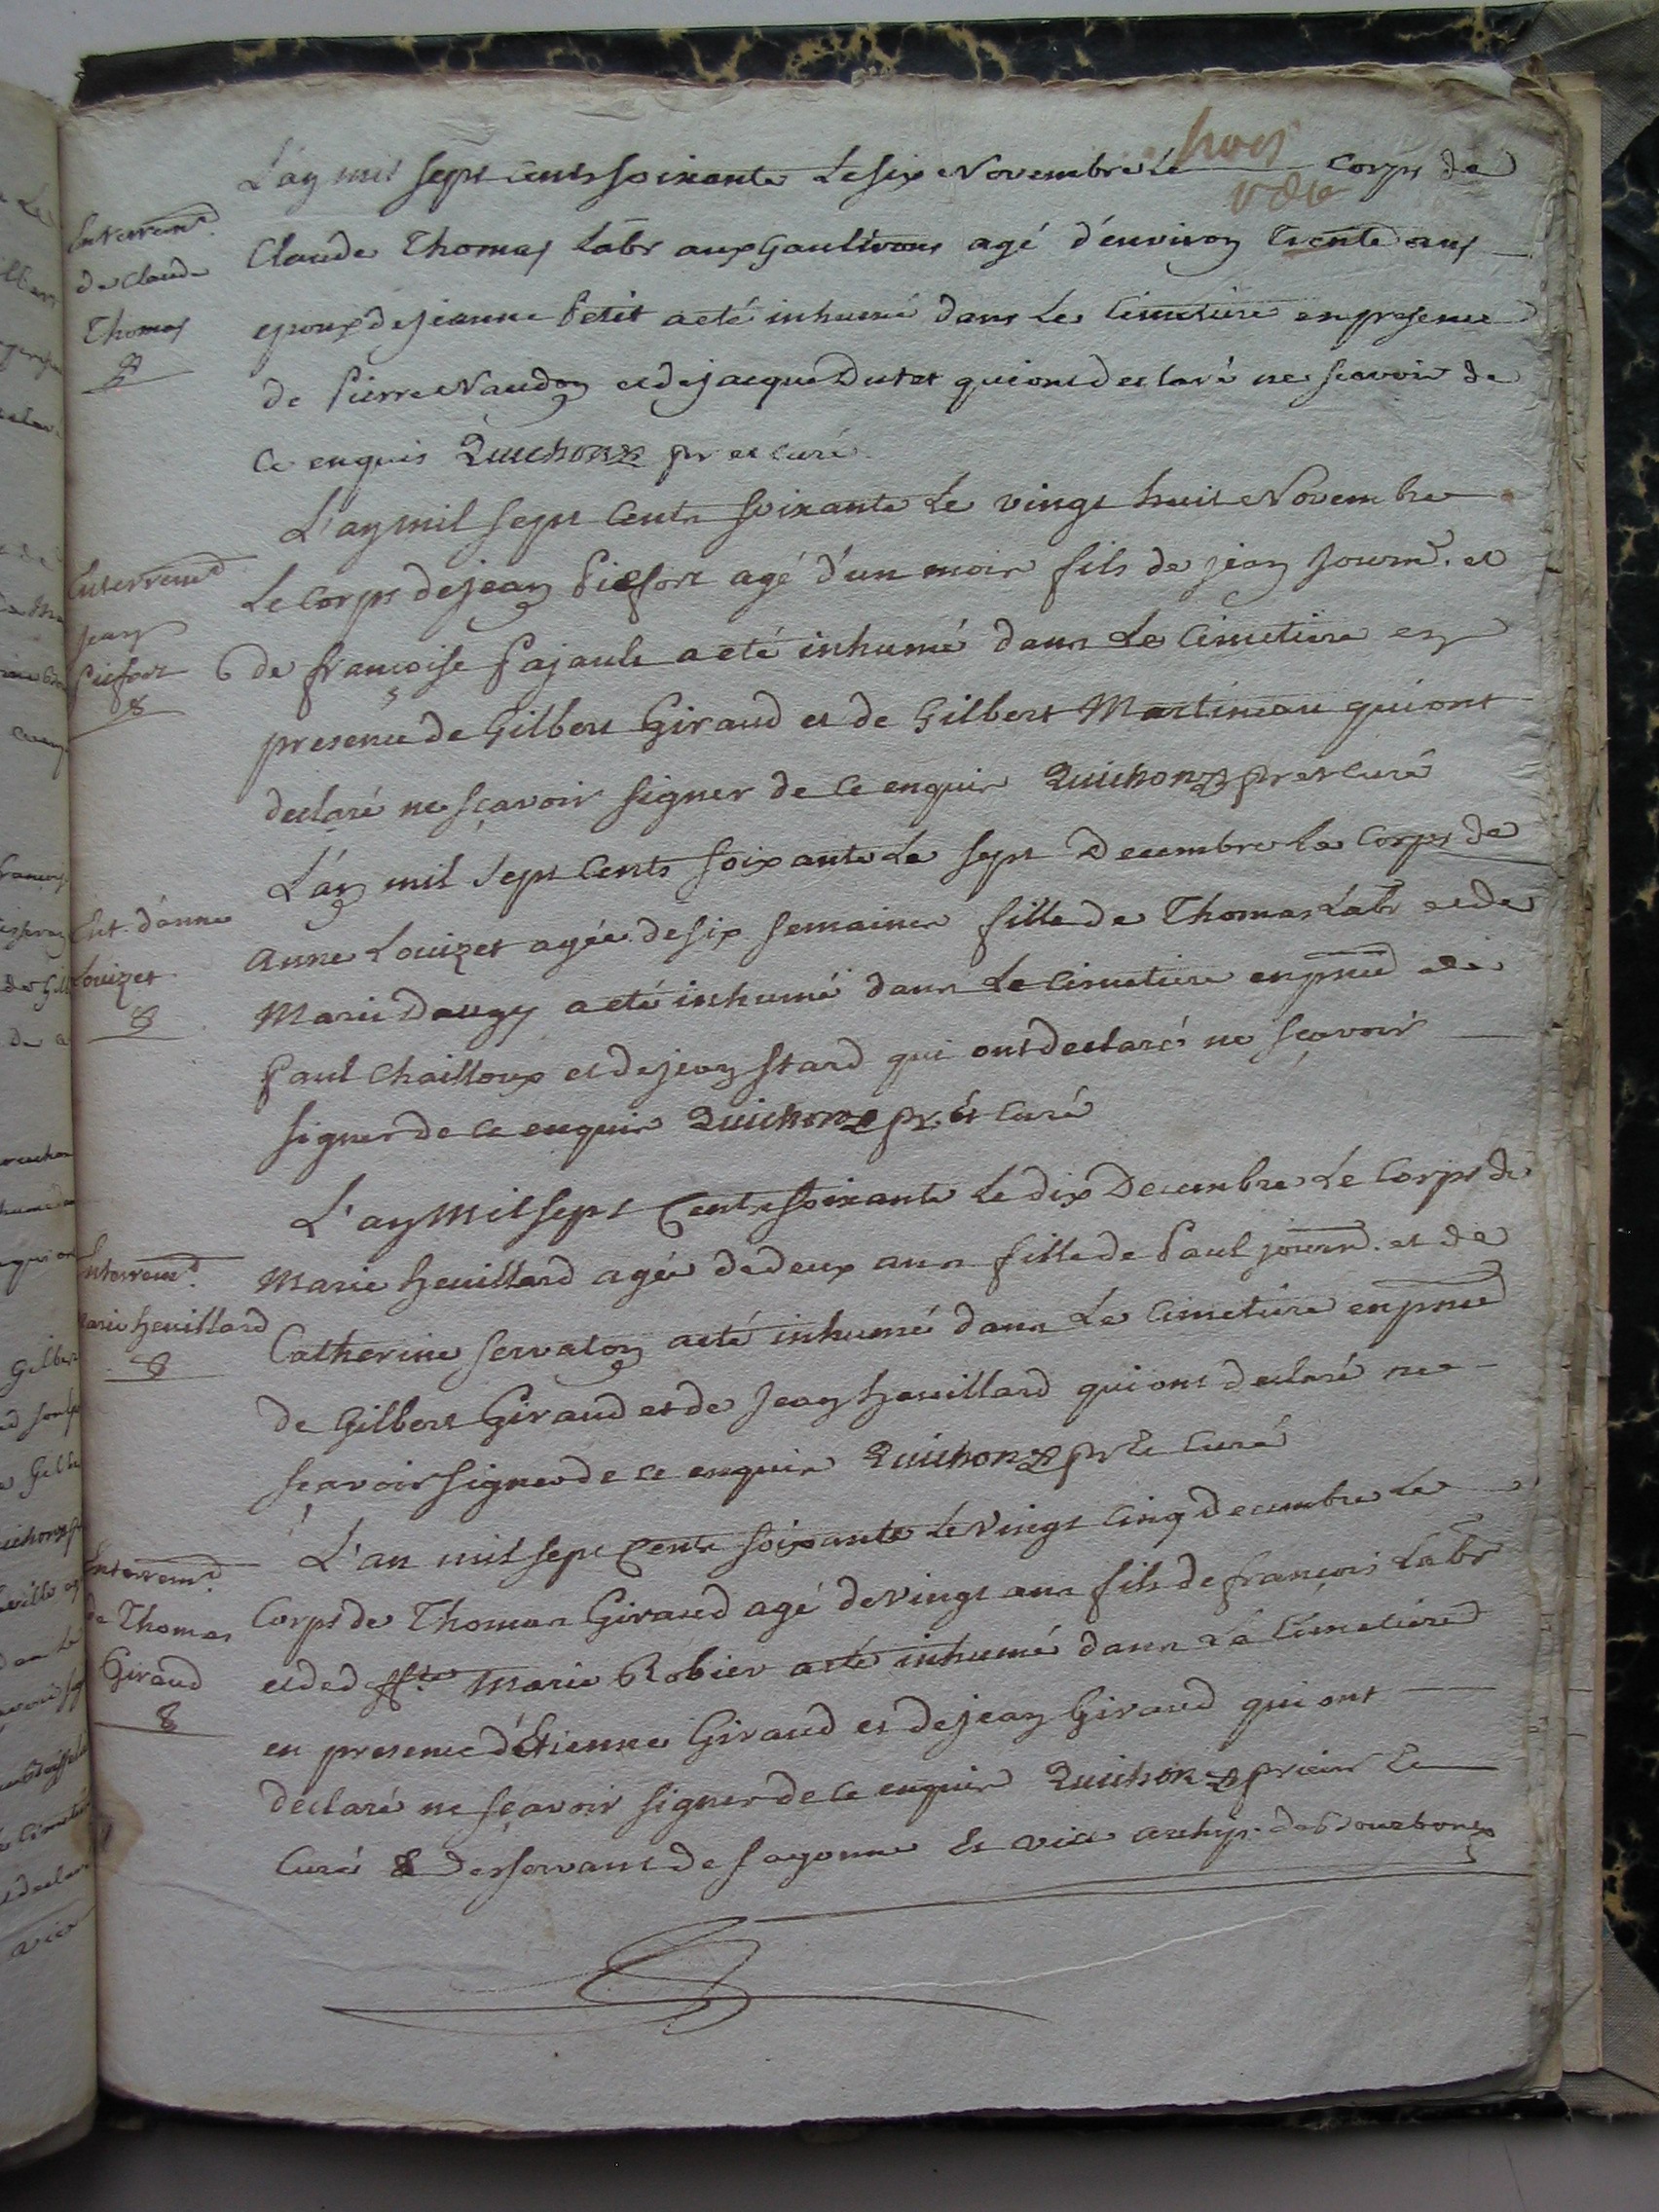 L'an mil sept cents soixante Le six Novembre Le corps de
Enterrem.t de Claude Thomas
Claude Thomas labr aux Gaulivans agé d'environ trente ans
epoux de jeanne Petit a eté inhumé dans Le Cimetiere en presence
de Pierre Naudon et de jacque Dutet qui ont declaré ne scavoir de
Ce enquis Quichon pr et curé
L'an mil sept Cents soixante Le vingt huit Novembre
Enterrem.t jean Piefort
Le Corps de jean Piefort agé d'un mois fils de jean Journ.er et
de françoise Pajault a eté inhumé dans Le Cimetiere en
presence de Gilbert Giraud et de Gilbert Martineau qui ont
declaré ne sçavoir signer de Ce enquis Quichon pr et curé
L'an mil sept Cents soixante Le sept Decembre Le Corps de
Ent. d'anne Louizet
Anne Louizet agée de six semaines fille de Thomas Labr et de
Marie Daugy a eté inhumé dans Le Cimetiere en pnce de
Paul Chailloux et de jean stard qui ont declaré ne sçavoir
signer de Ce enquis Quichon pr. et Curé
L'an Mil sept Cents soixante Le dix Decembre Le Corps de
Enterrem.t Marie heuillard
Marie heuillard agée de deux ans fille de Paul journ.er et de
Catherine servaton a eté inhumé dans Le Cimetiere en pnce
de Gilbert Giraud et de Jean heuillard qui ont declaré ne
sçavoir signer de Ce enquis Quichon pr et Curé
L'an mil sept Cents soixante Le Vingt Cinq Decembre Le
Enterrem.t de Thomas Giraud
Corps de Thomas Giraud agé de Vingt ans fils de françois Labr
et de Marie Robier a eté inhumé dans Le Cimetiere
en presence d'Etienne Giraud et de jean Giraud qui ont
declaré ne sçavoir signer de Ce enquis Quichon prieur et
Curé & desservant de sagonne et vice archip. de Bourbon